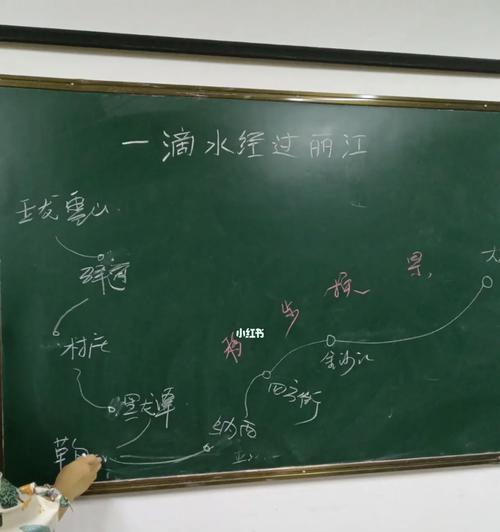 一滴水经过丽江
玉龙雪山
村庄
黑龙潭
草
纳西
四方街
金沙江
移步换景
大
小红书